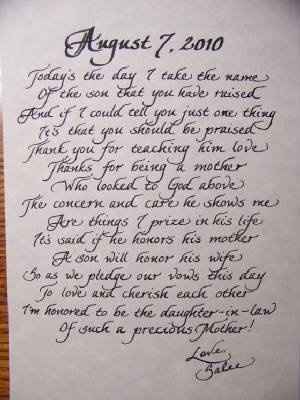 August 7, 2010
Today's the day I take the name
Of the son that you have raised
And if I could tell you just one thing
It's that you should be praised
Thank you for teaching him love
Thanks for being a mother
Who looked to God above
The concern and care he shows me
Are things I prize in his life
It's said if he honors his mother
A son will honor his wife
So as we pledge our vows this day
To love and cherish each other
I'm honored to be the daughter-in-law
Of such a precious Mother!
Love,